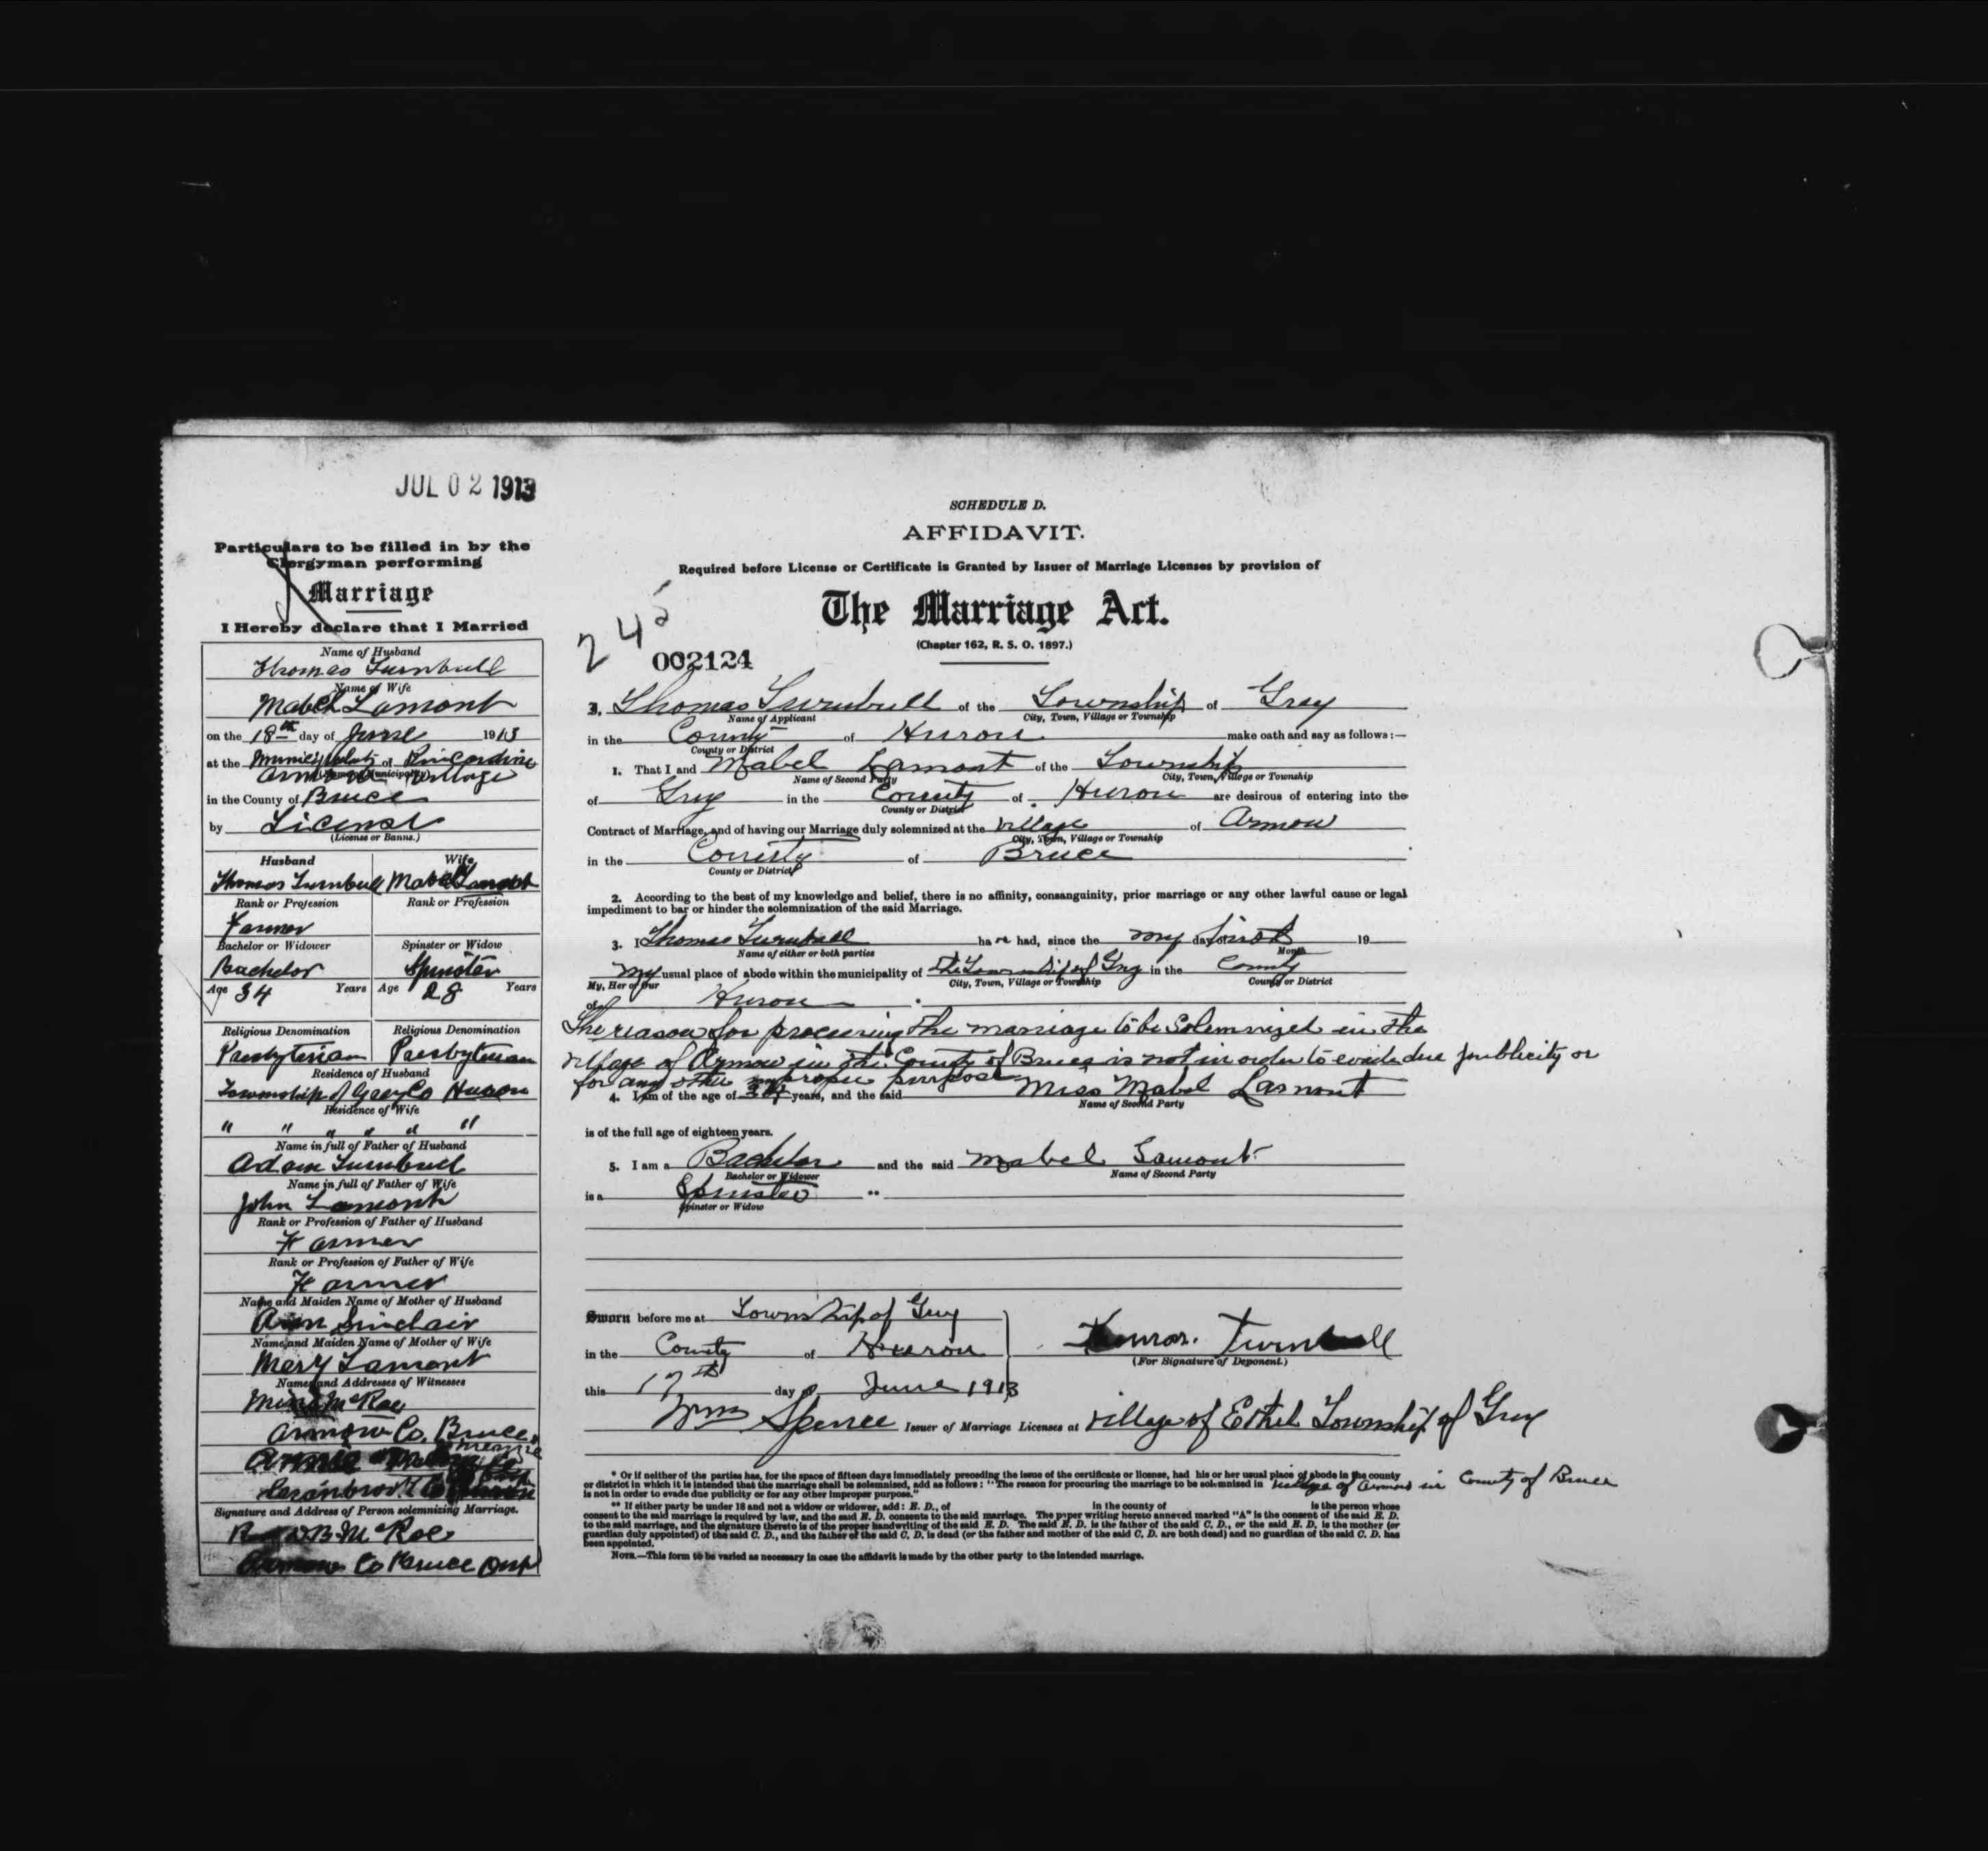 JUL 02 1913
Particulars to be filled in by the
Clergyman performing
Marriage
I Hereby declare that I Married
Name of Husband
Thomas Turnbull
Name of Wife
Mabel Lamont
on the 18th day of June 1913
at the Municipality of Kincardine
Armow Village
in the County of Bruce
by License
(License or Banns.)
Husband Wife
Thomas Turnbull Mabel Lamont
Rank or Profession Rank or Profession
Farmer
Bachelor or Widower Spinster or Widow
Bachelor Spinster
Age 34 Years Age 28 Years
Religious Denomination Religious Denomination
Presbyterian Presbyterian
Residence of Husband
Township of Grey Co Huron
Residence of Wife
" " " " " "
Name in full of Father of Husband
Adam Turnbull
Name in full of Father of Wife
John Lamont
Rank or Profession of Father of Husband
Farmer
Rank or Profession of Father of Wife
Farmer
Name and Maiden Name of Mother of Husband
Ann Sinclair
Name and Maiden Name of Mother of Wife
Mary Lamont
Names and Addresses of Witnesses
McRae
Armow Co. Bruce
Cranbrook
Signature and Address of Person solemnizing Marriage.
McRae
Armow Co Bruce Ont
SCHEDULE D.
AFFIDAVIT.
Required before License or Certificate is Granted by Issuer of Marriage Licenses by provision of
The Marriage Act.
(Chapter 162, R. S. O. 1897.)
245
002124
I, Thomas Turnbull of the Township of Grey
Name of Applicant City, Town, Village or Township
in the County of Huron make oath and say as follows:—
County or District
1. That I and Mabel Lamont of the Township
Name of Second Party City, Town, Village or Township
of Grey in the County of Huron are desirous of entering into the
County or District
Contract of Marriage, and of having our Marriage duly solemnized at the Village of Armow
City, Town, Village or Township
in the County of Bruce
County or District
2. According to the best of my knowledge and belief, there is no affinity, consanguinity, prior marriage or any other lawful cause or legal
impediment to bar or hinder the solemnization of the said Marriage.
3. I Thomas Turnbull have had, since the my day of 19
Name of either or both parties Month
My usual place of abode within the municipality of The Township of Grey in the County
My, Her or Our City, Town, Village or Township County or District
of Huron
The reason for procuring the marriage to be Solemnized in the
village of Armow in the County of Bruce is not in order to evade due publicity or
for any other improper purpose
4. I am of the age of 34 years, and the said Miss Mabel Lamont
Name of Second Party
is of the full age of eighteen years.
5. I am a Bachelor and the said Mabel Lamont
Bachelor or Widower Name of Second Party
is a Spinster **
Spinster or Widow
Sworn before me at Township of Grey
in the County of Huron
this 17th day of June 1913
Thomas Turnbull
(For Signature of Deponent.)
Wm Spence Issuer of Marriage Licenses at village of Ethel Township of Grey
* Or if neither of the parties has, for the space of fifteen days immediately preceding the issue of the certificate or license, had his or her usual place of abode in the county
or district in which it is intended that the marriage shall be solemnized, add as follows: "The reason for procuring the marriage to be solemnized in village of Armow in County of Bruce
is not in order to evade due publicity or for any other improper purpose."
** If either party be under 18 and not a widow or widower, add: E. D., of in the county of is the person whose
consent to the said marriage is required by law, and the said E. D. consents to the said marriage. The paper writing hereto annexed marked "A" is the consent of the said E. D.
to the said marriage, and the signature thereto is of the proper handwriting of the said E. D. The said E. D. is the father of the said C. D., or the said E. D. is the mother (or
guardian duly appointed) of the said C. D., and the father of the said C. D. is dead (or the father and mother of the said C. D. are both dead) and no guardian of the said C. D. has
been appointed.
NOTE.—This form to be varied as necessary in case the affidavit is made by the other party to the intended marriage.